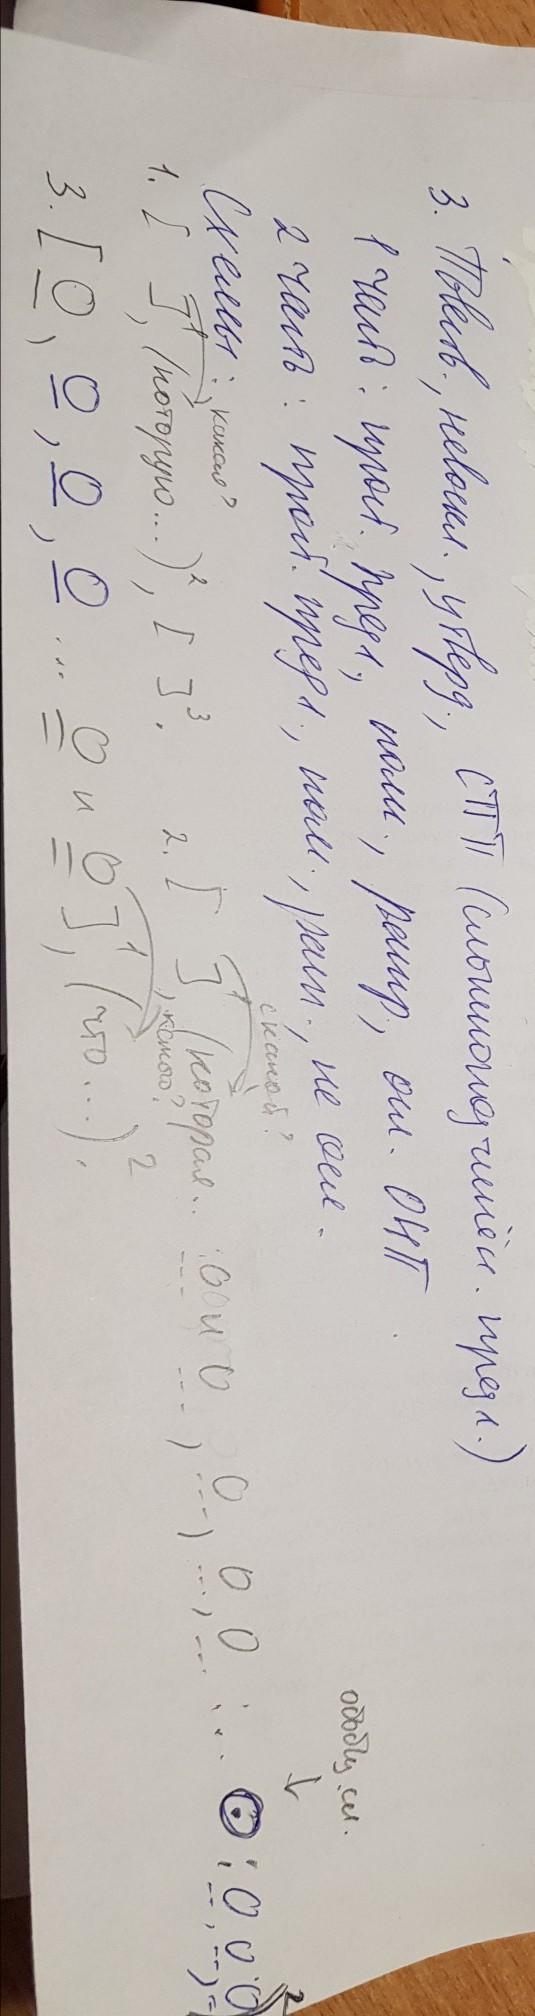 3. Повеств., невоскл., утверд., СПП (сложноподчинён. предл.)
1 часть: прост. предл., полн., распр., осл. ОЧП
2 часть: прост. предл., полн., расп., не осл.
Схемы:
какая?
1. [ ]¹, (которую...)², [ ]³.
с какой?
2. [ ]¹, (которая... : О и О, О, О, О ... ⊙ : О, О, О)²
какого?
обобщ. сл. ↓
3. [О, О, О, О ... О и О]¹, (что...)².